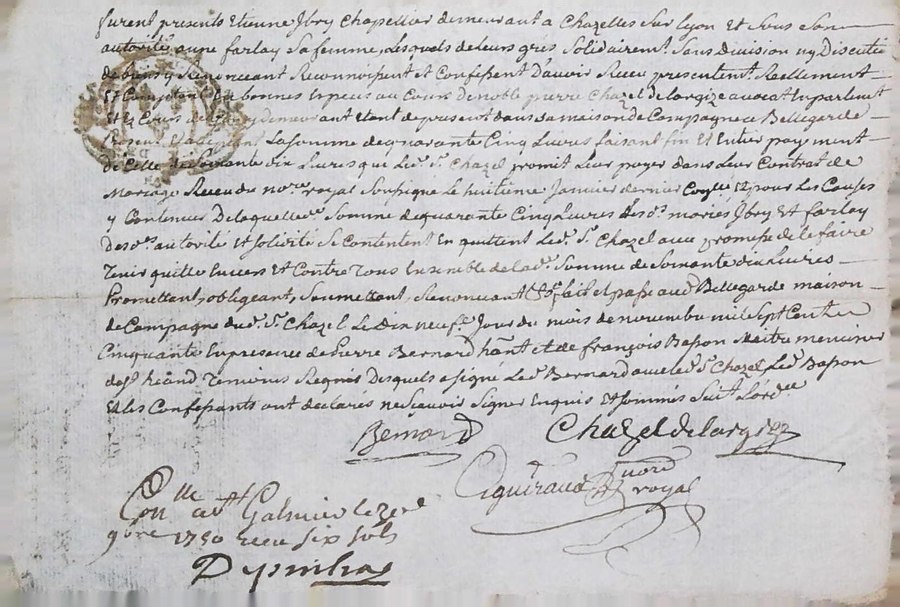 furent presents Etienne Jbry Chapellier demeurant a Chazelles sur lyon Et sous son
autorité anne farlay Sa femme, Lesquels de leurs gres Solidairemt. Sans division ny Discution
de biens y Renonceant Reconnoissent Et Confessent D'avoir Receu presentemt. Reellement
Et Comptant En bonnes Especes au Cours De noble pierre Chazel de largize avocat En parlement
Et Cours de demeurant Etant de present dans sa maison de Campagne a Bellegarde
present Et acceptant La somme de quarante Cinq Livres faisant fin Et Entier payement
de Celle de Soixante dix Livres que Led. Sr. Chazel promit Leur payer dans Leur Contrat de
Mariage Receu du nore. royal Soussigné Le huitieme Janvier dernier pour Les Causes
y Contenues De laquelle Somme de quarante Cinq Livres Lesd. mariés Jbry Et farlay
Desd. autorité Et Solidité Se Contentent En quittent Led. Sr. Chazel avec promesse de le faire
Tenir quitte Envers Et Contre Tous Ensemble de lad. Somme de Soixante dix Livres
Promettant, obligeant, Soumettant, Renonceant fait Et passé aud. Bellegarde maison
de Campagne dud. Sr. Chazel Le Dix neufe. Jour du mois de novembre mil Sept Cent
Cinquante En presence de Pierre Bernard hant. et de François Basson Maitre menuisier
Temoins Requis Desquels a signé Led. Bernard avec led. Sr. Chazel Led. Basson
Et les Confessants ont declarés ne Scavoir Signer Enquis Et Sommés Suivt. L'ordce
Bernard Chazel de largize
Eguiraud nore
royal
Conlle a St. Galmier le
9bre 1750 receu six sols